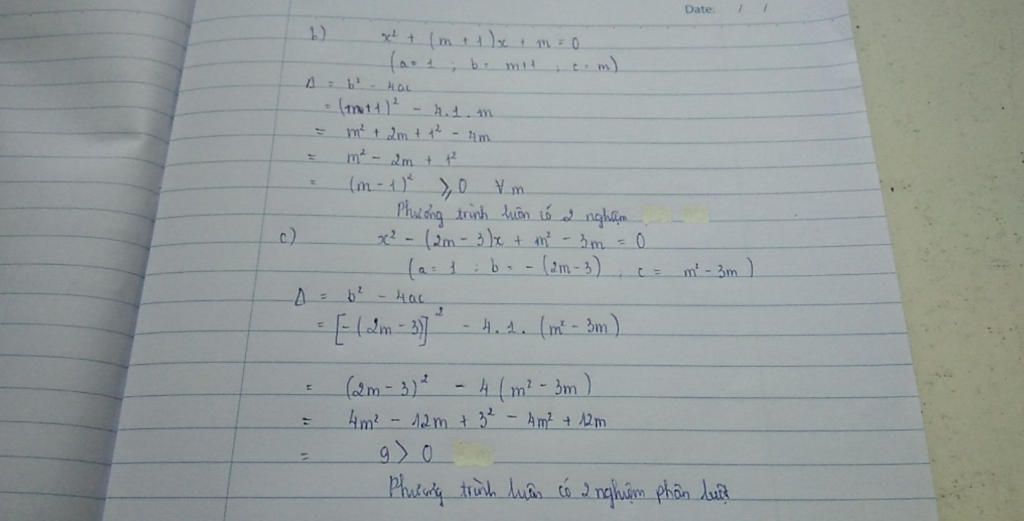 Date: / /
b) x² + (m + 1)x + m = 0
(a = 1 ; b = m+1 ; c = m)
Δ = b² - 4ac
= (m+1)² - 4.1.m
= m² + 2m + 1² - 4m
= m² - 2m + 1²
= (m - 1)² ⩾ 0 ∀m
Phương trình luôn có 2 nghiệm
c) x² - (2m - 3)x + m² - 3m = 0
(a = 1 ; b = - (2m-3) ; c = m² - 3m)
Δ = b² - 4ac
= [-(2m - 3)]² - 4.1.(m² - 3m)
= (2m - 3)² - 4(m² - 3m)
= 4m² - 12m + 3² - 4m² + 12m
= 9 > 0
Phương trình luôn có 2 nghiệm phân